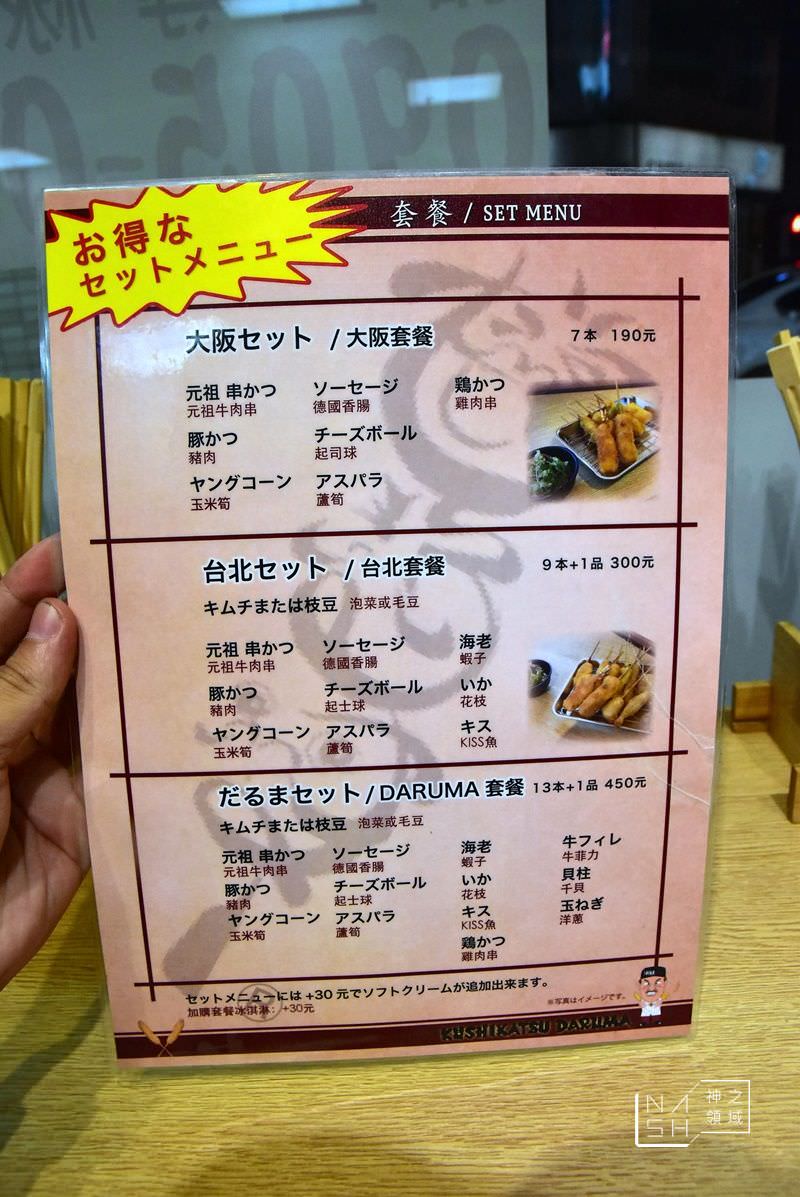 套餐 / SET MENU
お得な
セットメニュー
大阪セット / 大阪套餐 7本 190元
元祖 串かつ ソーセージ 鶏かつ
元祖牛肉串 德國香腸 雞肉串
豚かつ チーズボール
豬肉 起司球
ヤングコーン アスパラ
玉米筍 蘆筍
台北セット / 台北套餐 9本+1品 300元
キムチまたは枝豆 泡菜或毛豆
元祖 串かつ ソーセージ 海老
元祖牛肉串 德國香腸 蝦子
豚かつ チーズボール いか
豬肉 起士球 花枝
ヤングコーン アスパラ キス
玉米筍 蘆筍 KISS魚
だるまセット / DARUMA 套餐 13本+1品 450元
キムチまたは枝豆 泡菜或毛豆
元祖 串かつ ソーセージ 海老 牛フィレ
元祖牛肉串 德國香腸 蝦子 牛菲力
豚かつ チーズボール いか 貝柱
豬肉 起士球 花枝 干貝
ヤングコーン アスパラ キス 玉ねぎ
玉米筍 蘆筍 KISS魚 洋蔥
鶏かつ
雞肉串
セットメニューには +30 元でソフトクリームが追加出来ます。
加購套餐冰淇淋：+30元
※写真はイメージです。
KUSHIKATSU DARUMA
NASH 神之領域